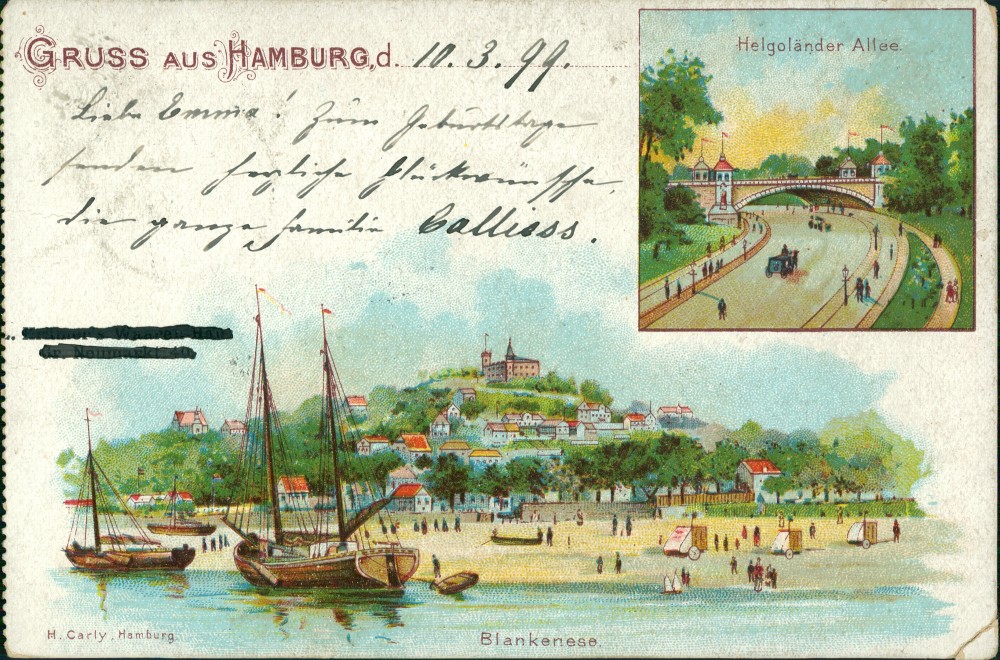 GRUSS AUS HAMBURG, d. 10. 3. 99.
Liebe Emma! Zum Geburtstage
senden herzliche Glückwünsche,
die ganze Familie Calliess.
Helgoländer Allee.
H. Carly, Hamburg.
Blankenese.